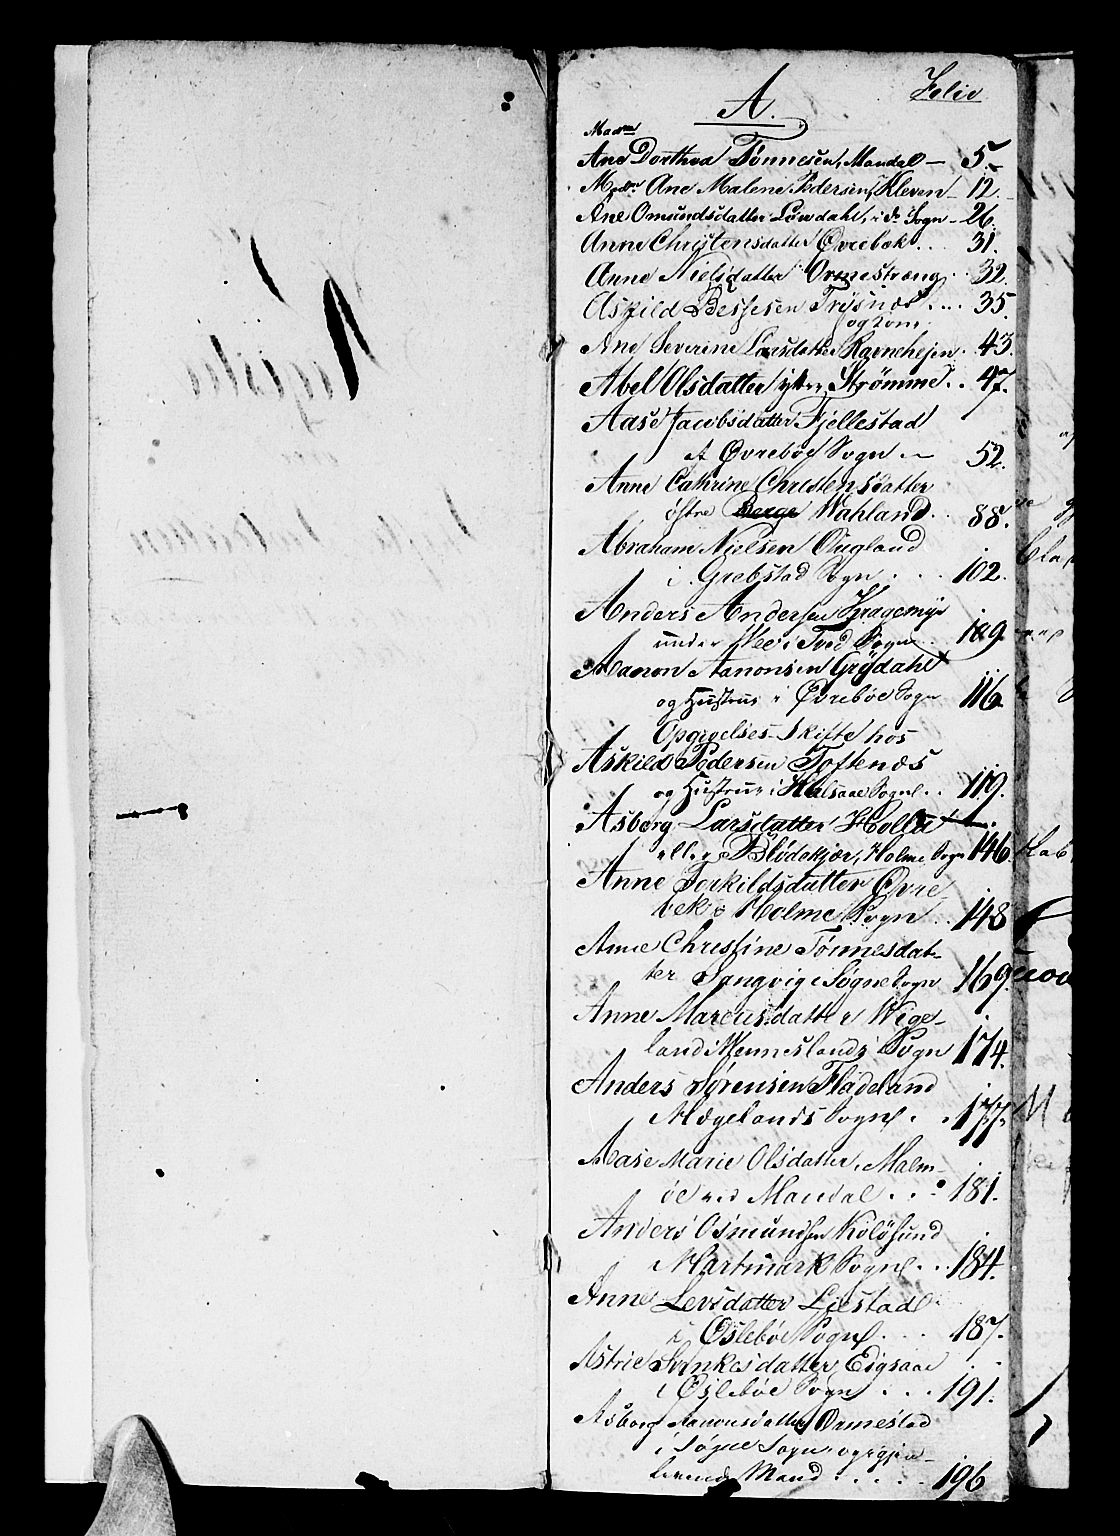 Folio
A.
Madm
Ane Dorthea Tønnesen, Mandal — 5.
Madm Ane Malene Pedersen, Kleven — 12.
Ane Omundsdatter Løvdahl, i do Sogn — 26.
Anne Christensdatter Øvrebek . . . 31.
Anne Nielsdatter Ormestræng . . 32.
Askild Berhesen Trysnæs . . . 35.
og Kone
Ane Severine Larsdatter Ravnehejen . 43.
Abel Olsdatter yttre Strømme . . 47.
Aase Jacobsdatter Fjellestad
af Øvrebøe Sogn — 52.
Anne Cathrine Christensdatter
østre Berge Wahland . . 88.
Abraham Nielsen Augland
i Grebstad Sogn . . . 102.
Anders Andersen Kragemyr
under Wee i Tved Sogn . . 109.
Aanon Aanonsen Grødahl
og Hustrue i Øvrebøe Sogn 116
Opgivelses Skifte hos
Askild Pedersen Toftenæs
og Hustrue i Halsaae Sogn . . 119.
Asborg Larsdatter Holla
eller Blødekjær, Holme Sogn 146
Anne Torkildsdatter Øvre
bek i Holme Sogn . . 148
Anne Christine Tønnesdat-
ter Langvig i Søgne Sogn 169.
Anne Marcusdatter Wige-
land i Wenneslands Sogn 174.
Anders Sørensen Fladeland
Hægelands Sogn . . 177.
Aase Marie Olsdatter, Malm-
øe ved Mandal . . . 181.
Anders Osmundsen Koløsund
Hartmark Sogn . . . 184.
Anne Levsdatter Liestad
i Øslebøe Sogn . . . 187.
Astrie Svinkesdatter Eigsaae
i Øslebøe Sogn . . . 191.
Asborg Aanonsdatter Ormestad
i Søgne Sogn og gjen-
levende Mand . . . . . 196
Register
over